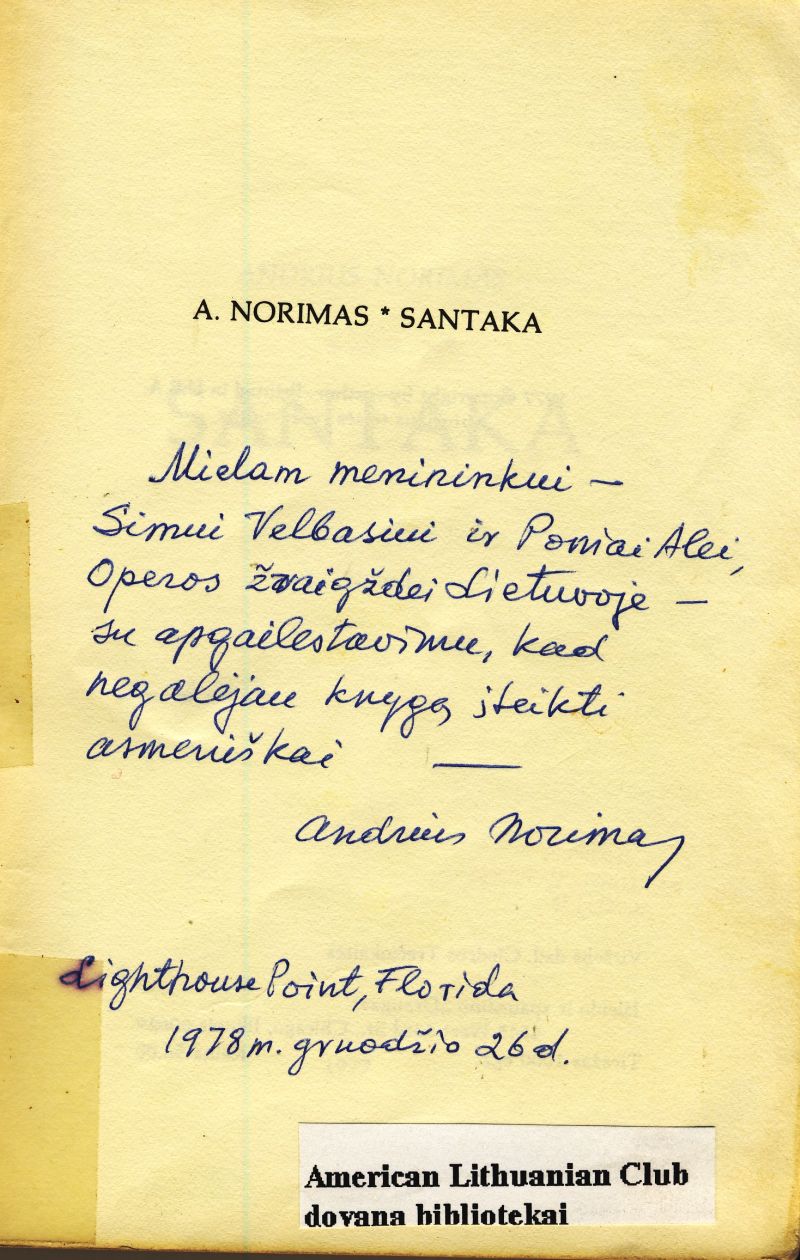 A. NORIMAS * SANTAKA
Mielam menininkui —
Simui Velbasiui ir Poniai Alei,
Operos žvaigždei Lietuvoje —
su apgailestavimu, kad
negalėjau knygą įteikti
asmeniškai —
Andrius Norimas
Lighthouse Point, Florida
1978 m. gruodžio 26 d.
American Lithuanian Club
dovana bibliotekai